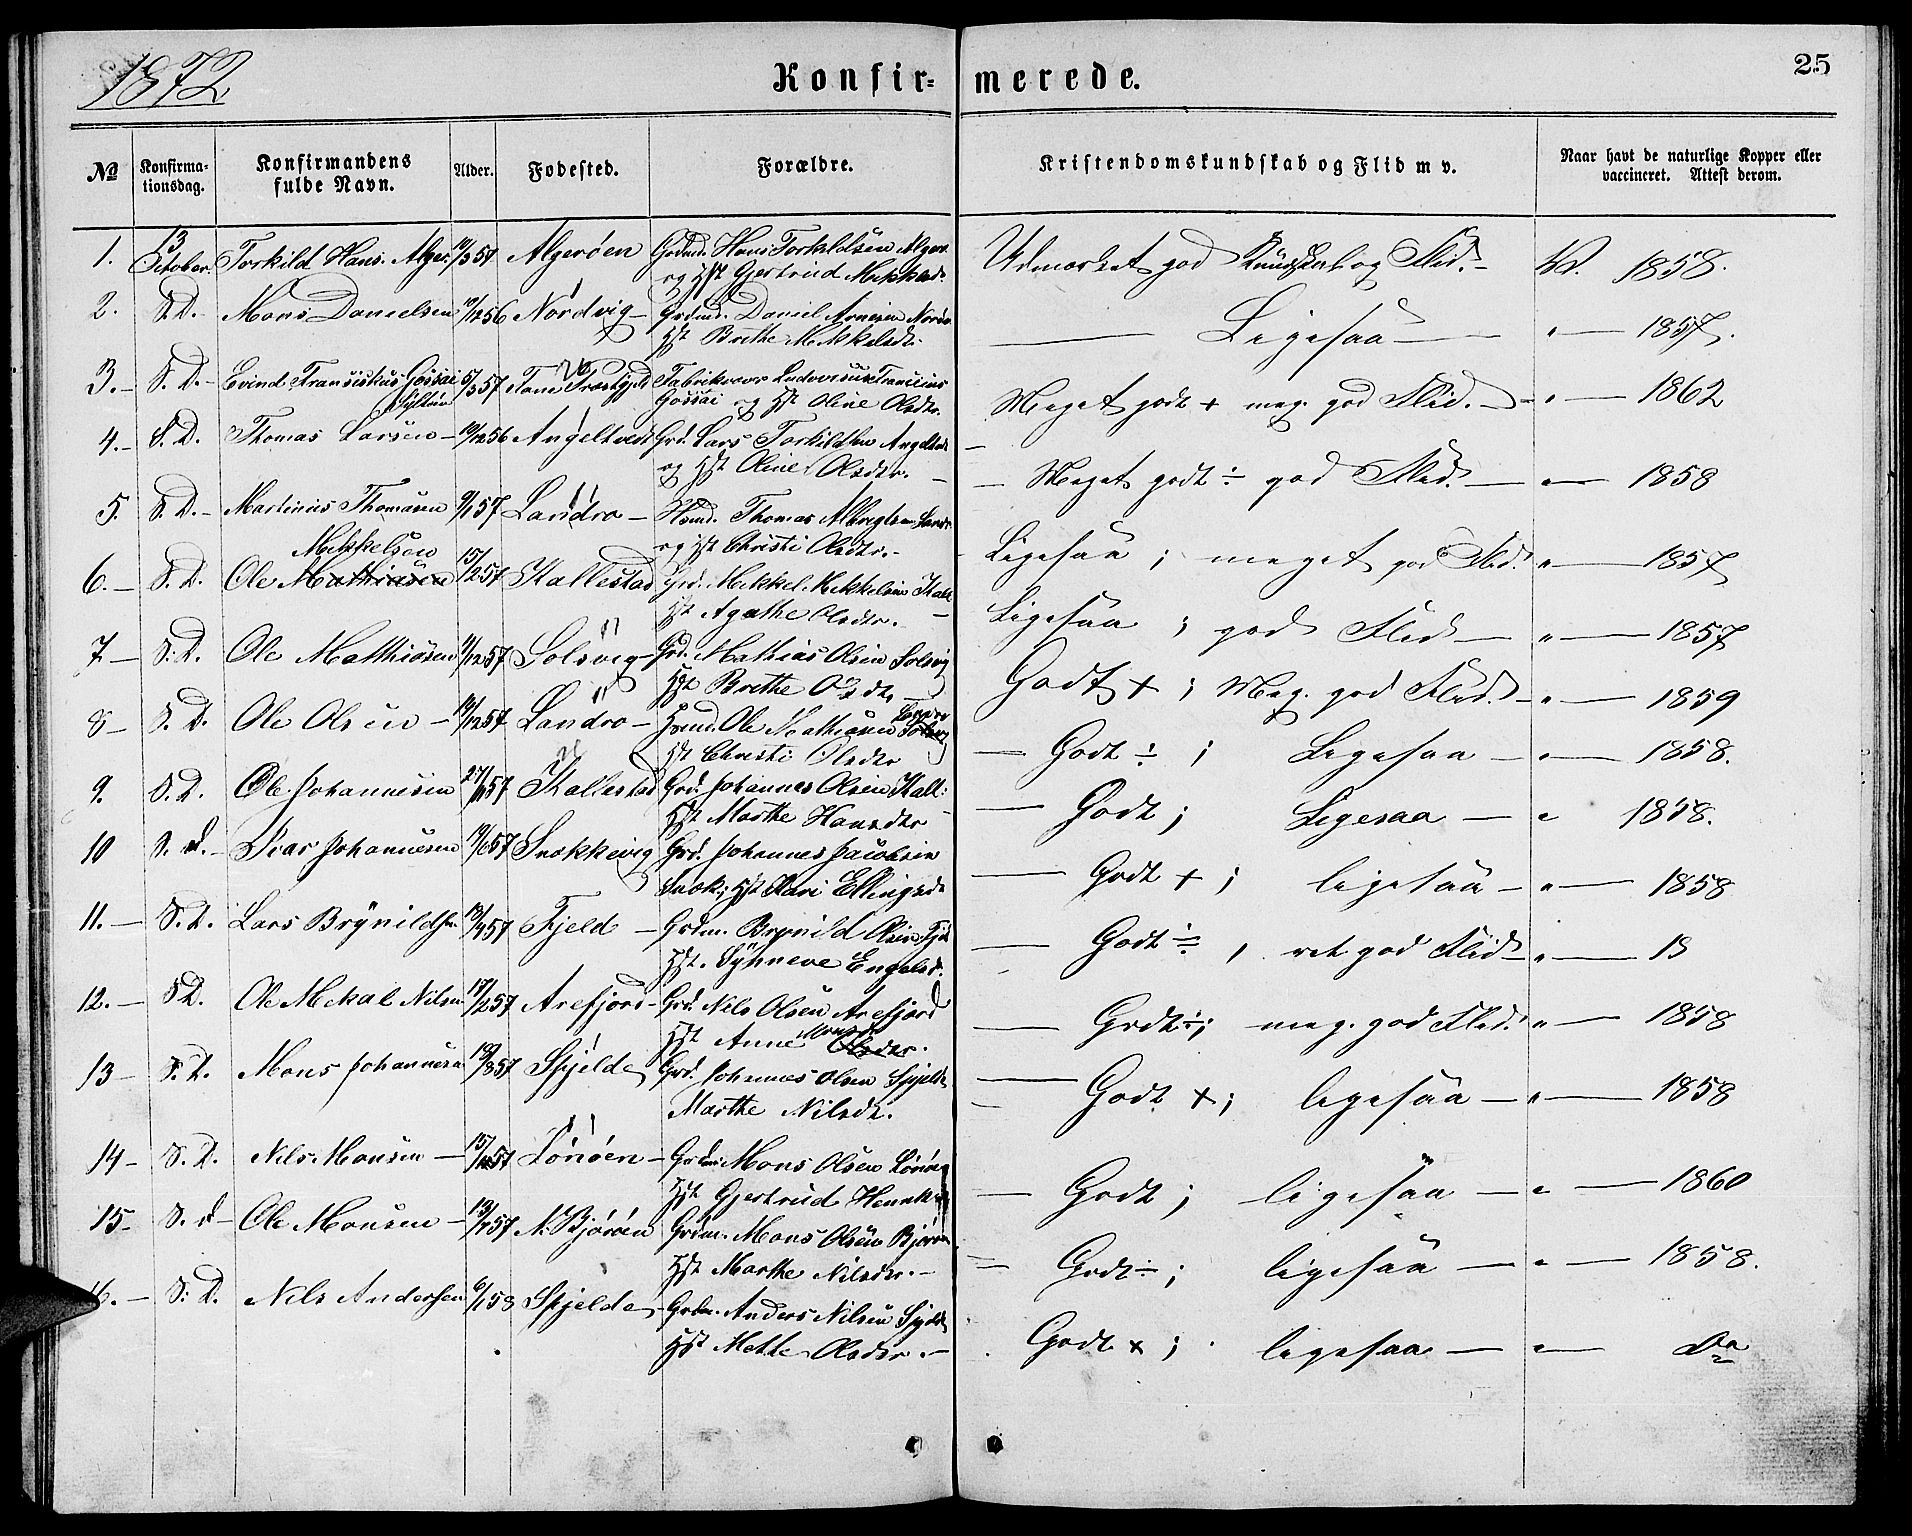 1872
Konfir=
merede.
25
No
Konfirma-
tionsdag.
Konfirmandens
fulde Navn.
Alder.
Fødested.
Forældre.
Kristendomskundskab og Flid m v.
Naar havt de naturlige Kopper eller
vaccineret. Attest derom.
1. 13 October Torkild Hans. Alger. Algerøen Grdmd. Hans Torkildsen Alger.
og Hst Gjertrud Mikkelsd.
Udmærket god Kundskab og Flid. – W. 1858.
2. S. D. Mons Danielsen 12/56 Nordvig – Grdmd. Daniel Arnesen Nordv.
Hst Brithe Mikkelsdr.
— Ligesaa — " — 1857.
3. – S. D. – Evind Fransiskus Gossai 5/3 57
Oline Olsdr.
Meget godt + meg. god Flid. – " — 1862
4. – S. D. Thomas Larsen – 12/56 Angeltvedt Grd. Lars Torkildsen Angeltv.
og Hst Oline Olsdr. –
– Meget godt ÷ god Flid. – " — 1858
5. S. D. – Martinus Thomasen 9/1 57 Landro – Hsmd. Thomas Albregtsen Landr.
og Hst Christi Olsdr. –
Ligesaa ; meget god Flid. " — 1857
Mikkelsen
6. – S. D. Ole Mathiasen 15/2 57 Kallestad Grd. Mikkel Mikkelsen Kall.
Hst Agathe Olsdr. –
Ligesaa ; god Flid – " — 1857
7 – S. D. Ole Mathiasen 11/12 57 Solsvig – Grd. Mathias Olsen Solsvig
Hst Brithe Olsdr –
Godt + ; Meg. god Flid. – " — 1859
8 – S. D. Ole Olsen – 14/12 57 Landro – Hsmd. Ole Mathiasen Landro
Hst Christi Olsdr
— Godt ÷ ; Ligesaa – " — 1858.
9. S. D. Ole Johannesen 27/ 57 Kallestad Grd. Johannes Olsen Kall:
Hst Marthe Hansdr
— Godt ; Ligesaa — " 1858.
10 S. d. – Ivar Johannesen 57 Snekkevig Grd. Johannes Jacobsen
Snek.; Hst Kari Ellingsdr
— Godt + ; ligesaa – " — 1858
11. – S. D. Lars Brynildsen 57 Fjeld – Grdm. Brynild Olsen Fjel
Hst. Synneve Engelsd.
— Godt ÷ , ret god Flid – " — 18
12. – S D. Ole Mikal Nilsen 17/2 57 Arefjord – Grd. Nils Olsen Arefjord
Hst Anne Monsdr Olsdr.
— Godt ÷ ; meg. god Flid. " — 1858
13 – S. D. Mons Johannesen 18/8 57 Spjelde Grd. Johannes Olsen Spjelde
Marthe Nilsdr.
— Godt + ; ligesaa – " — 1858
14 – S. D. Nils Monsen – 15/ 57 Lønøen – Grdm. Mons Olsen Lønøen
Hst Gjertrud Henriks
— Godt ; ligesaa – " — 1860
15. S. d – Ole Monsen – 57 N. Bjørøen Grdm. Mons Olsen Bjørøen
Hst Marthe Nilsdr. –
– Godt ÷ ; ligesaa – " — 1858.
16. – S. D. Nils Andersen 6/1 58 Spjelde Grdm. Anders Nilsen Spjeld
Hst Mette Olsdr. –
Godt + ; ligesaa – " — Do